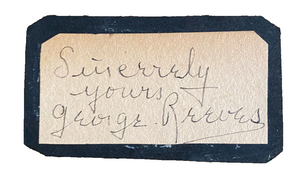 Sincerely
yours
George Reeves